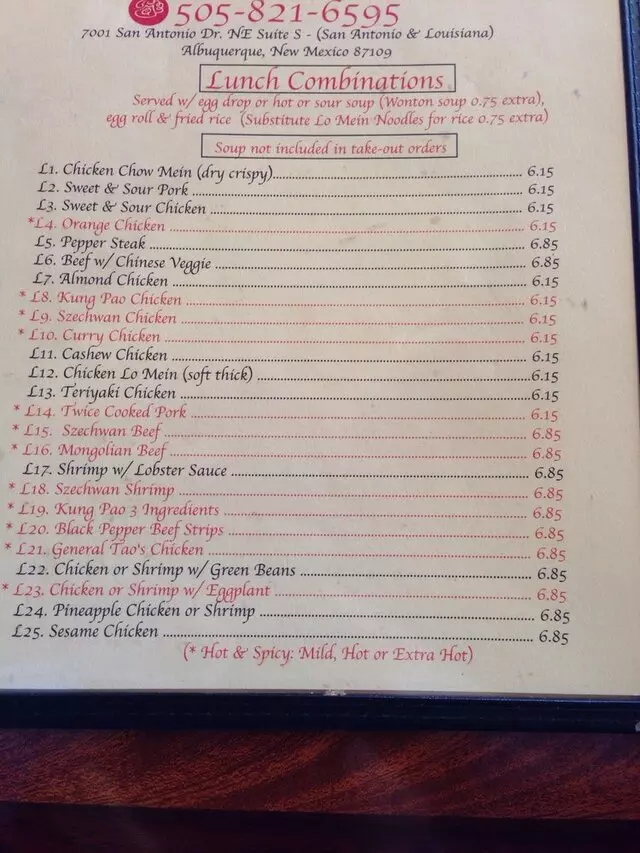 505-821-6595
7001 San Antonio Dr. NE Suite S - (San Antonio & Louisiana)
Albuquerque, New Mexico 87109
Lunch Combinations
Served w/ egg drop or hot or sour soup (Wonton soup 0.75 extra),
egg roll & fried rice (Substitute Lo Mein Noodles for rice 0.75 extra)
Soup not included in take-out orders
L1. Chicken Chow Mein (dry crispy) 6.15
L2. Sweet & Sour Pork 6.15
L3. Sweet & Sour Chicken 6.15
*L4. Orange Chicken 6.15
L5. Pepper Steak 6.85
L6. Beef w/ Chinese Veggie 6.85
L7. Almond Chicken 6.15
* L8. Kung Pao Chicken 6.15
* L9. Szechwan Chicken 6.15
* L10. Curry Chicken 6.15
L11. Cashew Chicken 6.15
L12. Chicken Lo Mein (soft thick) 6.15
L13. Teriyaki Chicken 6.15
* L14. Twice Cooked Pork 6.15
* L15. Szechwan Beef 6.85
* L16. Mongolian Beef 6.85
L17. Shrimp w/ Lobster Sauce 6.85
* L18. Szechwan Shrimp 6.85
* L19. Kung Pao 3 Ingredients 6.85
* L20. Black Pepper Beef Strips 6.85
* L21. General Tao's Chicken 6.85
L22. Chicken or Shrimp w/ Green Beans 6.85
* L23. Chicken or Shrimp w/ Eggplant 6.85
L24. Pineapple Chicken or Shrimp 6.85
L25. Sesame Chicken 6.85
(* Hot & Spicy: Mild, Hot or Extra Hot)